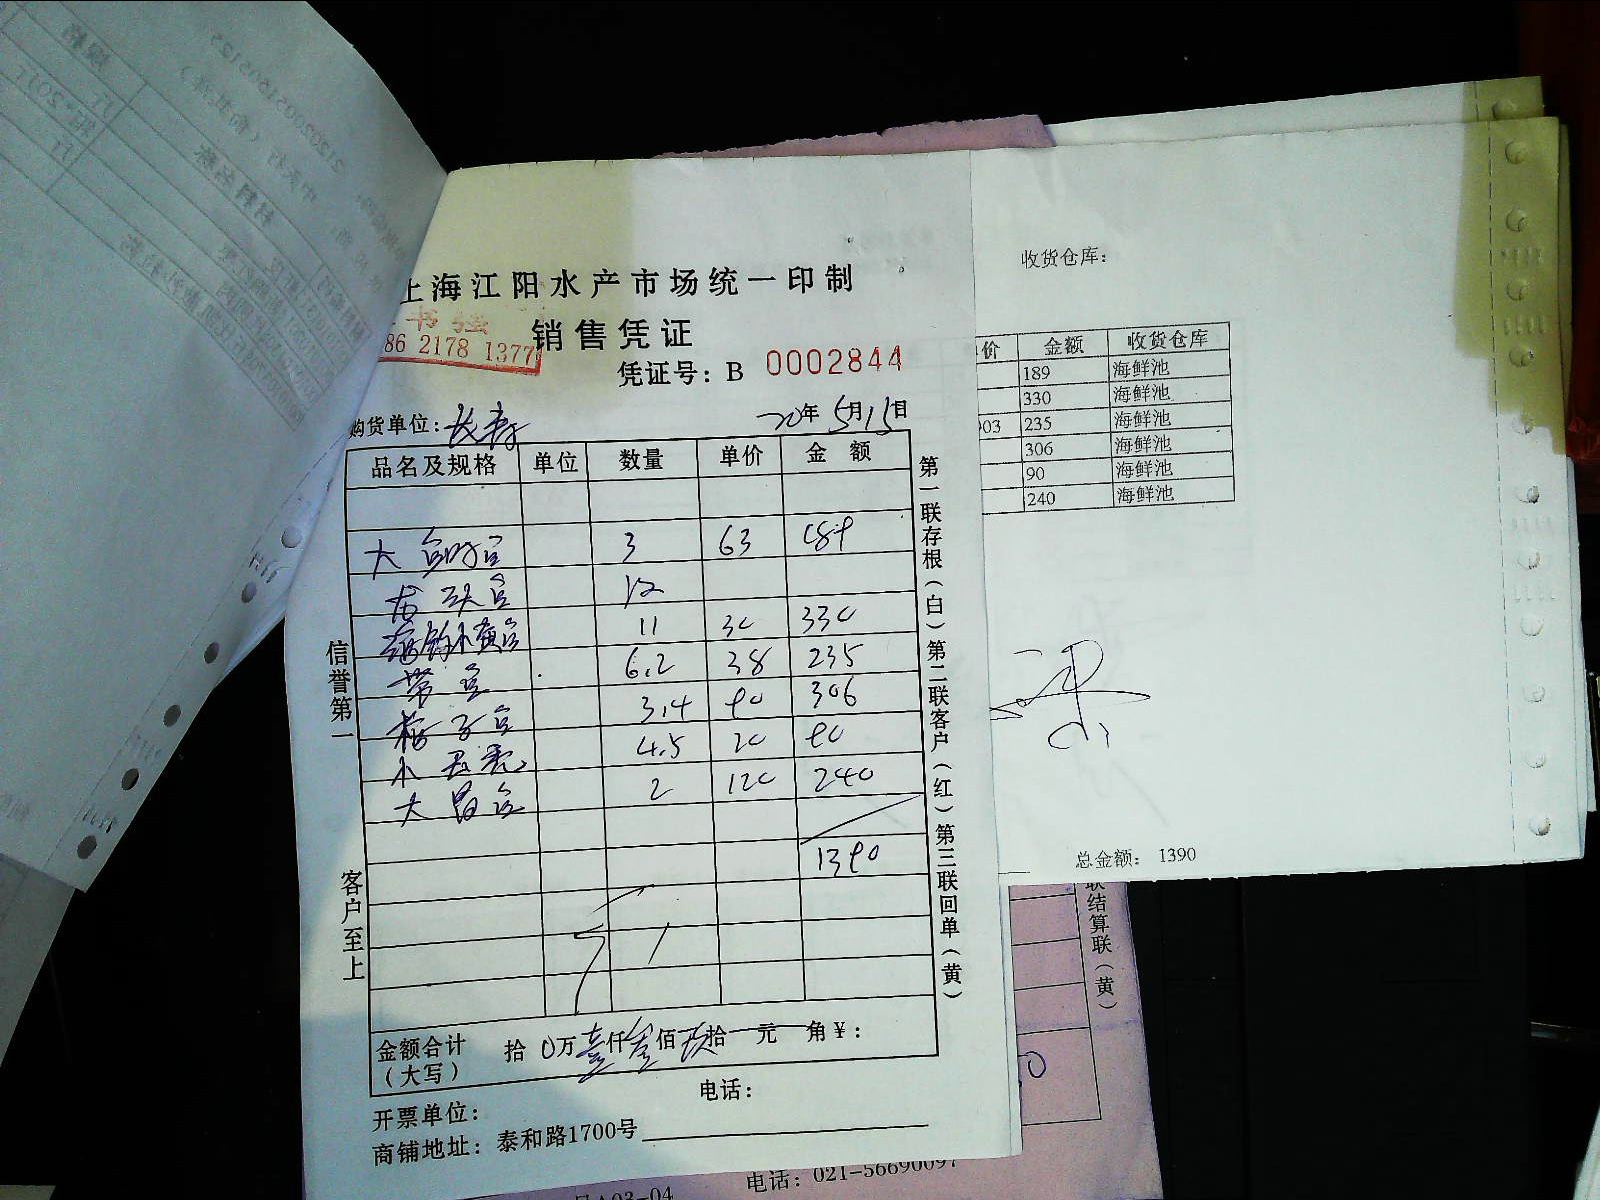 上海江阳水产市场统一印制
销售凭证
书强
86 2178 1377
凭证号：B 0002844
购货单位：长寿 20年5月15日
品名及规格 单位 数量 单价 金额
大 3 63 189
龙头鱼 12
海钓小黄鱼 11 30 330
带鱼 6.2 38 235
梅子鱼 3.4 90 306
小 4.5 20 90
大昌鱼 2 120 240
1390
金额合计（大写） 拾 0万壹仟叁佰玖拾 元 角￥：
电话：
开票单位：
商铺地址：泰和路1700号
信誉第一
客户至上
第一联存根（白）第二联客户（红）第三联回单（黄）
收货仓库：
价 金额 收货仓库
189 海鲜池
330 海鲜池
03 235 海鲜池
306 海鲜池
90 海鲜池
240 海鲜池
总金额：1390
联结算联（黄）
电话：021-56690097
03-04